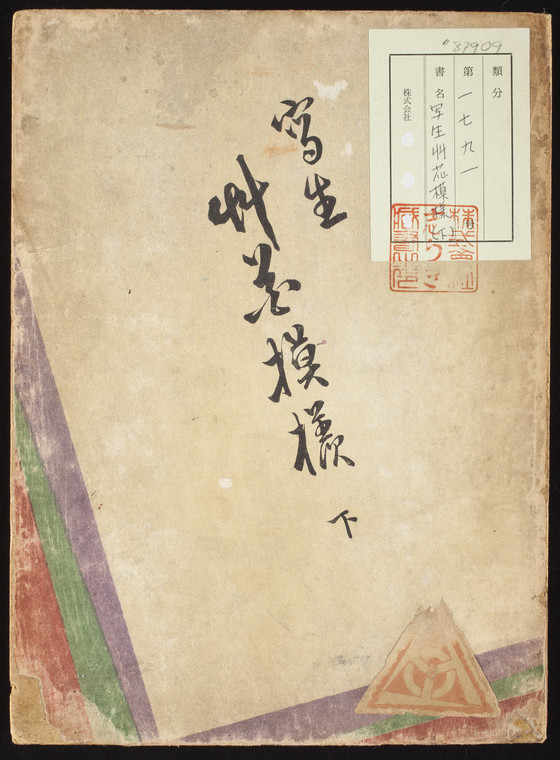 寫生
艸花模様
下
#87909
類分
第一七九一
書名 写生艸花模様 下
株式会社